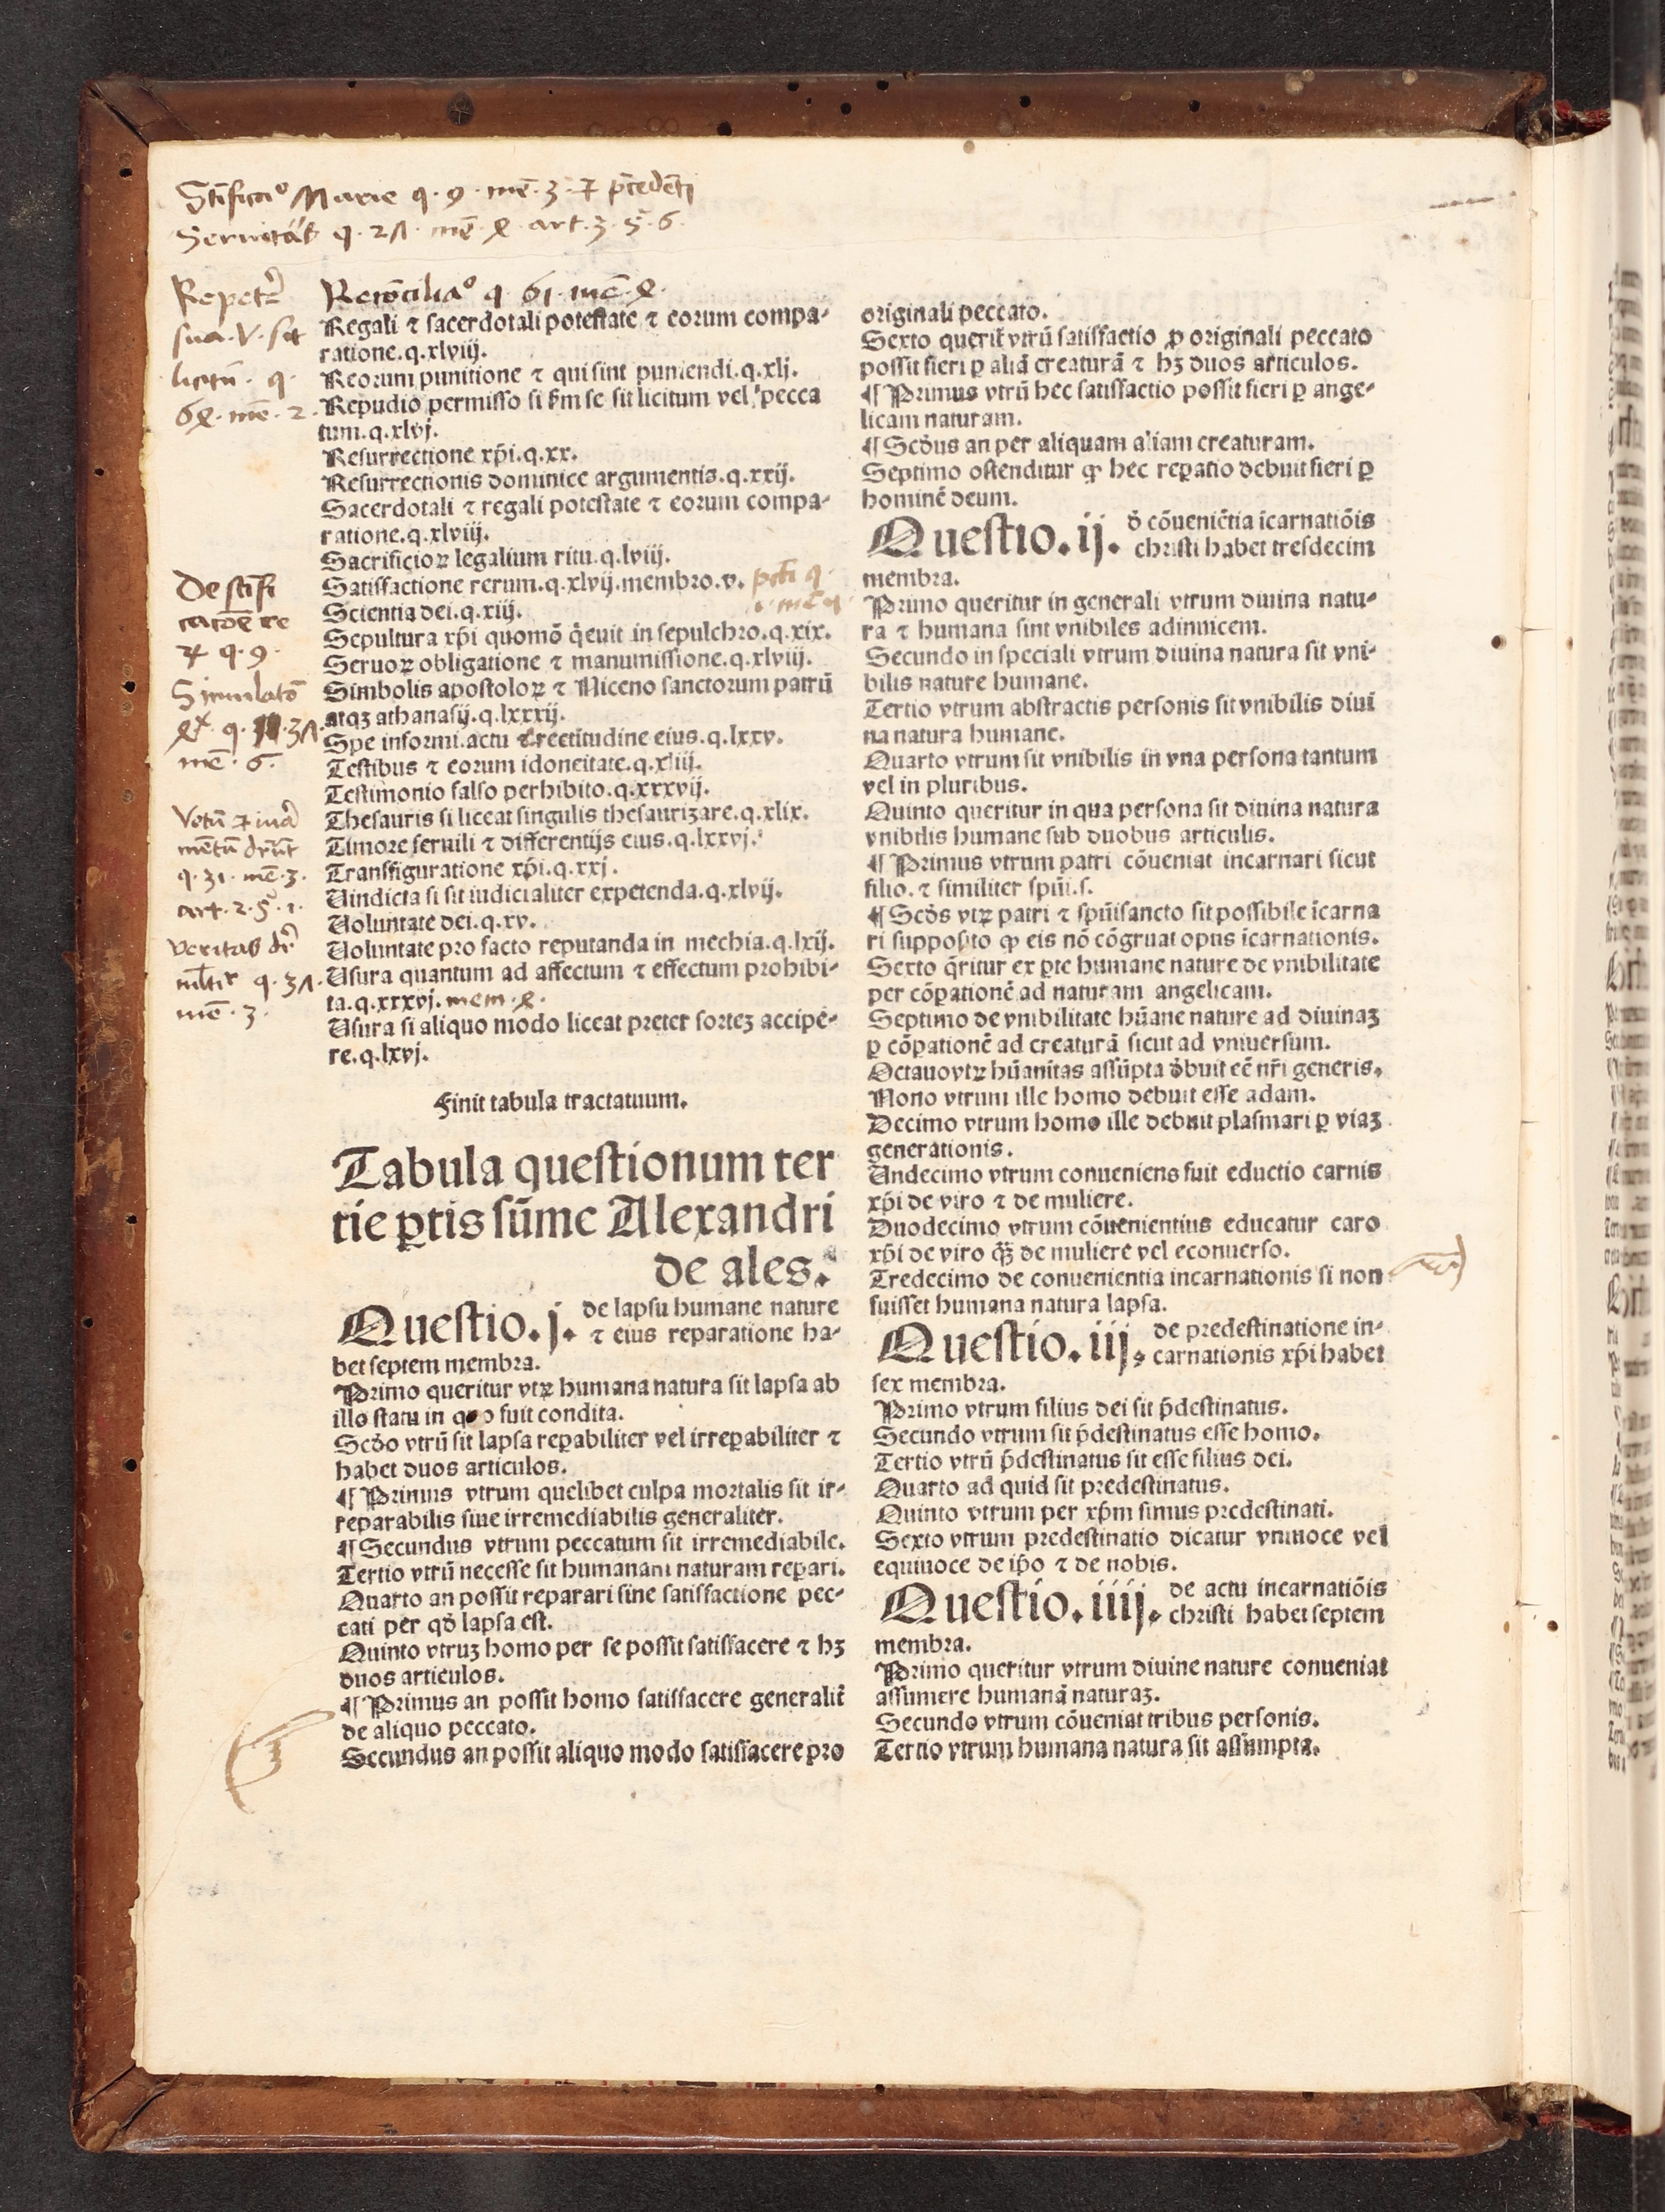 Stificaº Marie q. 9. mē. 3. ⁊ p̄cedēti
q. 27. mē. art. 3. 5. 6.
Repetr̃
sua. V. sit
licitū. q.
mē. 2.
De stifi
catōe re
q. 9.
Simulatō
q. 37.
mē. 6.
Votū ⁊ iura
mētū
q. 31. mē. 3.
art. 2. 5. 1.
veritas
q. 37.
mē. 3.
Recōciliaº q 61. mē.
Regali ⁊ sacerdotali potestate ⁊ eorum compa-
ratione.q.xlviij.
Reorum punitione ⁊ qui sint puniendi.q.xlj.
Repudio permisso si s̄m se sit licitum vel pecca
tum.q.xlvj.
Resurrectione xp̄i.q.xx.
Resurrectionis dominice argumentis.q.xxij.
Sacerdotali ⁊ regali potestate ⁊ eorum compa-
ratione.q.xlviij.
Sacrificioꝝ legalium ritu.q.lviij.
Satisfactione rerum.q.xlvij.membro.v.
Scientia dei.q.xiij.
Sepultura xp̄i quomō q̄euit in sepulchro.q.xix.
Seruoꝝ obligatione ⁊ manumissione.q.xlviij.
Simbolis apostoloꝝ ⁊ Niceno sanctorum patrū
atqꝫ athanasij.q.lxxxij.
Spe informi.actu ⁊ rectitudine eius.q.lxxv.
Testibus ⁊ eorum idoneitate.q.xliij.
Testimonio falso perhibito.q.xxxvij.
Thesauris si liceat singulis thesaurizare.q.xlix.
Timore seruili ⁊ differentijs eius.q.lxxvj.
Transfiguratione xp̄i.q.xxj.
Uindicta si sit iudicialiter expetenda.q.xlvij.
Uoluntate dei.q.xv.
Uoluntate pro facto reputanda in mechia.q.lxij.
Usura quantum ad affectum ⁊ effectum prohibi-
ta.q.xxxvj. mem.
Usura si aliquo modo liceat preter sortez accipe-
re.q.lxvj.
Finit tabula tractatuum.
Tabula questionum ter
tie ꝑtis sūme Alexandri
de ales.
Questio.j. de lapsu humane nature
⁊ eius reparatione ha-
bet septem membra.
Primo queritur vtꝝ humana natura sit lapsa ab
illo statu in quo fuit condita.
Scd̄o vtrū sit lapsa reꝑabiliter vel irreꝑabiliter ⁊
habet duos articulos.
¶ Primus vtrum quelibet culpa mortalis sit ir-
reparabilis siue irremediabilis generaliter.
¶ Secundus vtrum peccatum sit irremediabile.
Tertio vtrū necesse sit humanam naturam reꝑari.
Quarto an possit reparari sine satisfactione pec-
cati per qd̄ lapsa est.
Quinto vtruꝫ homo per se possit satisfacere ⁊ hꝫ
duos articulos.
¶ Primus an possit homo satisfacere generalit̄
de aliquo peccato.
Secundus an possit aliquo modo satisfacere pro
originali peccato.
Sexto querit̄ vtrū satisfactio ꝓ originali peccato
possit fieri ꝑ aliā creaturā ⁊ hꝫ duos articulos.
¶ Primus vtrū hec satisfactio possit fieri ꝑ ange-
licam naturam.
¶ Scd̄us an per aliquam aliam creaturam.
Septimo ostenditur ꝙ hec reꝑatio debuit fieri ꝑ
hominē deum.
Questio.ij. d̄ cōueniētia īcarnatiōis
christi habet tresdecim
membra.
Primo queritur in generali vtrum diuina natu-
ra ⁊ humana sint vnibiles adinuicem.
Secundo in speciali vtrum diuina natura sit vni-
bilis nature humane.
Tertio vtrum abstractis personis sit vnibilis diui
na natura humane.
Quarto vtrum sit vnibilis in vna persona tantum
vel in pluribus.
Quinto queritur in qua persona sit diuina natura
vnibilis humane sub duobus articulis.
¶ Primus vtrum patri cōueniat incarnari sicut
filio.⁊ similiter spūi.s.
¶ Scd̄s vtꝝ patri ⁊ spūisancto sit possibile īcarna
ri supposito ꝙ eis nō cōgruat opus īcarnationis.
Sexto q̄ritur ex ꝑte humane nature de vnibilitate
per cōꝑationē ad naturam angelicam.
Septimo de vnibilitate hūane nature ad diuinaꝫ
ꝑ cōꝑationē ad creaturā sicut ad vniuersum.
Octauo vtꝝ hūanitas assūpta d̄buit eē nr̄i generis.
Nono vtrum ille homo debuit esse adam.
Decimo vtrum homo ille debuit plasmari ꝑ viaꝫ
generationis.
Undecimo vtrum conueniens fuit eductio carnis
xp̄i de viro ⁊ de muliere.
Duodecimo vtrum cōuenientius educatur caro
xp̄i de viro q̄ꝫ de muliere vel econuerso.
Tredecimo de conuenientia incarnationis si non
fuisset humana natura lapsa.
Questio.iij. de predestinatione in-
carnationis xp̄i habet
sex membra.
Primo vtrum filius dei sit p̄destinatus.
Secundo vtrum sit p̄destinatus esse homo.
Tertio vtrū p̄destinatus sit esse filius dei.
Quarto ad quid sit predestinatus.
Quinto vtrum per xp̄m simus predestinati.
Sexto vtrum predestinatio dicatur vniuoce vel
equiuoce de ip̄o ⁊ de nobis.
Questio.iiij. de actu incarnatiōis
christi habet septem
membra.
Primo queritur vtrum diuine nature conueniat
assumere humanā naturaꝫ.
Secundo vtrum cōueniat tribus personis.
Tertio vtrum humana natura sit assumpta.